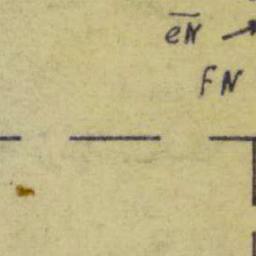 eN
FN